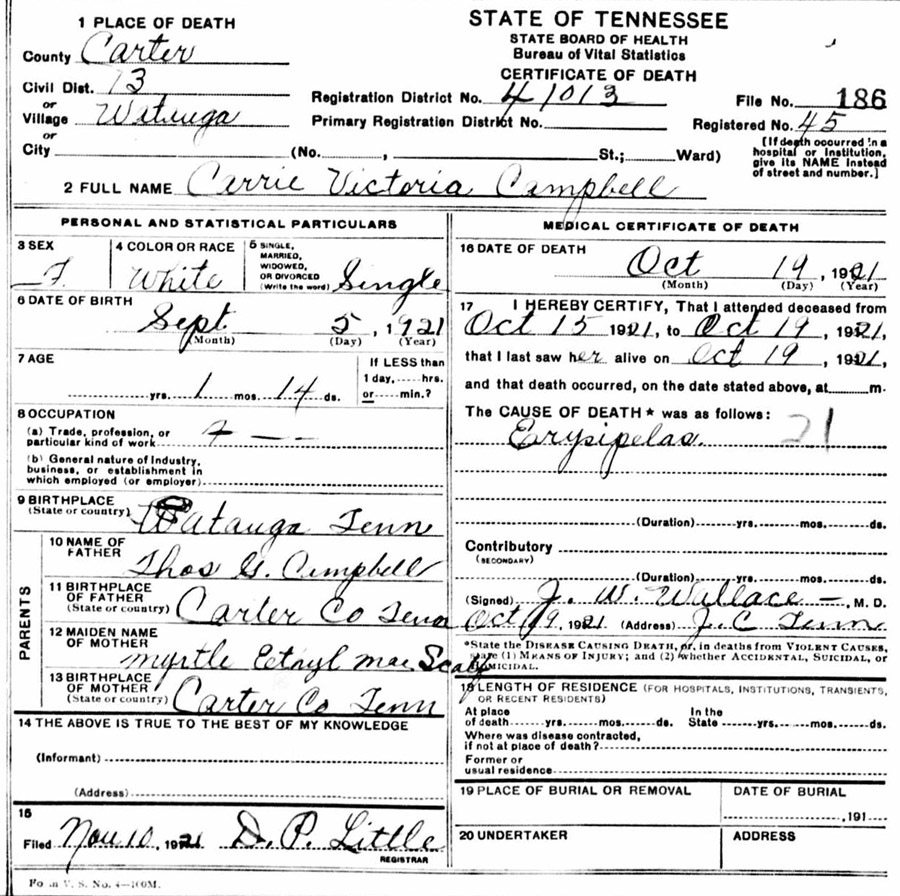 STATE OF TENNESSEE
STATE BOARD OF HEALTH
Bureau of Vital Statistics
CERTIFICATE OF DEATH
1 PLACE OF DEATH
County Carter
Civil Dist. 13
or
Village Watauga
or
City (No. , St.; Ward)
Registration District No. 41013
File No. 186
Primary Registration District No.
Registered No. 45
[If death occurred in a
hospital or institution,
give its NAME instead
of street and number.]
2 FULL NAME Carrie Victoria Campbell
PERSONAL AND STATISTICAL PARTICULARS
3 SEX
F.
4 COLOR OR RACE
White
5 SINGLE,
MARRIED,
WIDOWED,
OR DIVORCED
(Write the word) Single
6 DATE OF BIRTH
Sept 5, 1921
(Month) (Day) (Year)
7 AGE
yrs. 1 mos. 14 ds.
If LESS than
1 day, hrs.
or min.?
8 OCCUPATION
(a) Trade, profession, or
particular kind of work
(b) General nature of industry,
business, or establishment in
which employed (or employer)
9 BIRTHPLACE
(State or country) Watauga Tenn
PARENTS
10 NAME OF
FATHER
Thos G. Campbell
11 BIRTHPLACE
OF FATHER
(State or country) Carter Co Tenn
12 MAIDEN NAME
OF MOTHER
Myrtle mae Scalf
13 BIRTHPLACE
OF MOTHER
(State or country) Carter Co Tenn
14 THE ABOVE IS TRUE TO THE BEST OF MY KNOWLEDGE
(Informant)
(Address)
15
Filed Nov 10, 1921 D. P. Little
REGISTRAR
MEDICAL CERTIFICATE OF DEATH
16 DATE OF DEATH
Oct 19, 1921
(Month) (Day) (Year)
17 I HEREBY CERTIFY, That I attended deceased from
Oct 15 1921, to Oct 19, 1921,
that I last saw her alive on Oct 19, 1921,
and that death occurred, on the date stated above, at m.
The CAUSE OF DEATH* was as follows:
Erysipelas. 21
(Duration) yrs. mos. ds.
Contributory
(SECONDARY)
(Duration) yrs. mos. ds.
(Signed) J. W. Wallace, M. D.
Oct 19, 1921 (Address) J. C Tenn
*State the DISEASE CAUSING DEATH, or, in deaths from VIOLENT CAUSES,
state (1) MEANS OF INJURY; and (2) whether ACCIDENTAL, SUICIDAL, or
HOMICIDAL.
18 LENGTH OF RESIDENCE (FOR HOSPITALS, INSTITUTIONS, TRANSIENTS,
OR RECENT RESIDENTS)
At place
of death yrs. mos. ds.
In the
State yrs. mos. ds.
Where was disease contracted,
if not at place of death?
Former or
usual residence
19 PLACE OF BURIAL OR REMOVAL
DATE OF BURIAL
, 191
20 UNDERTAKER
ADDRESS
Form V. S. No. 4—100M.